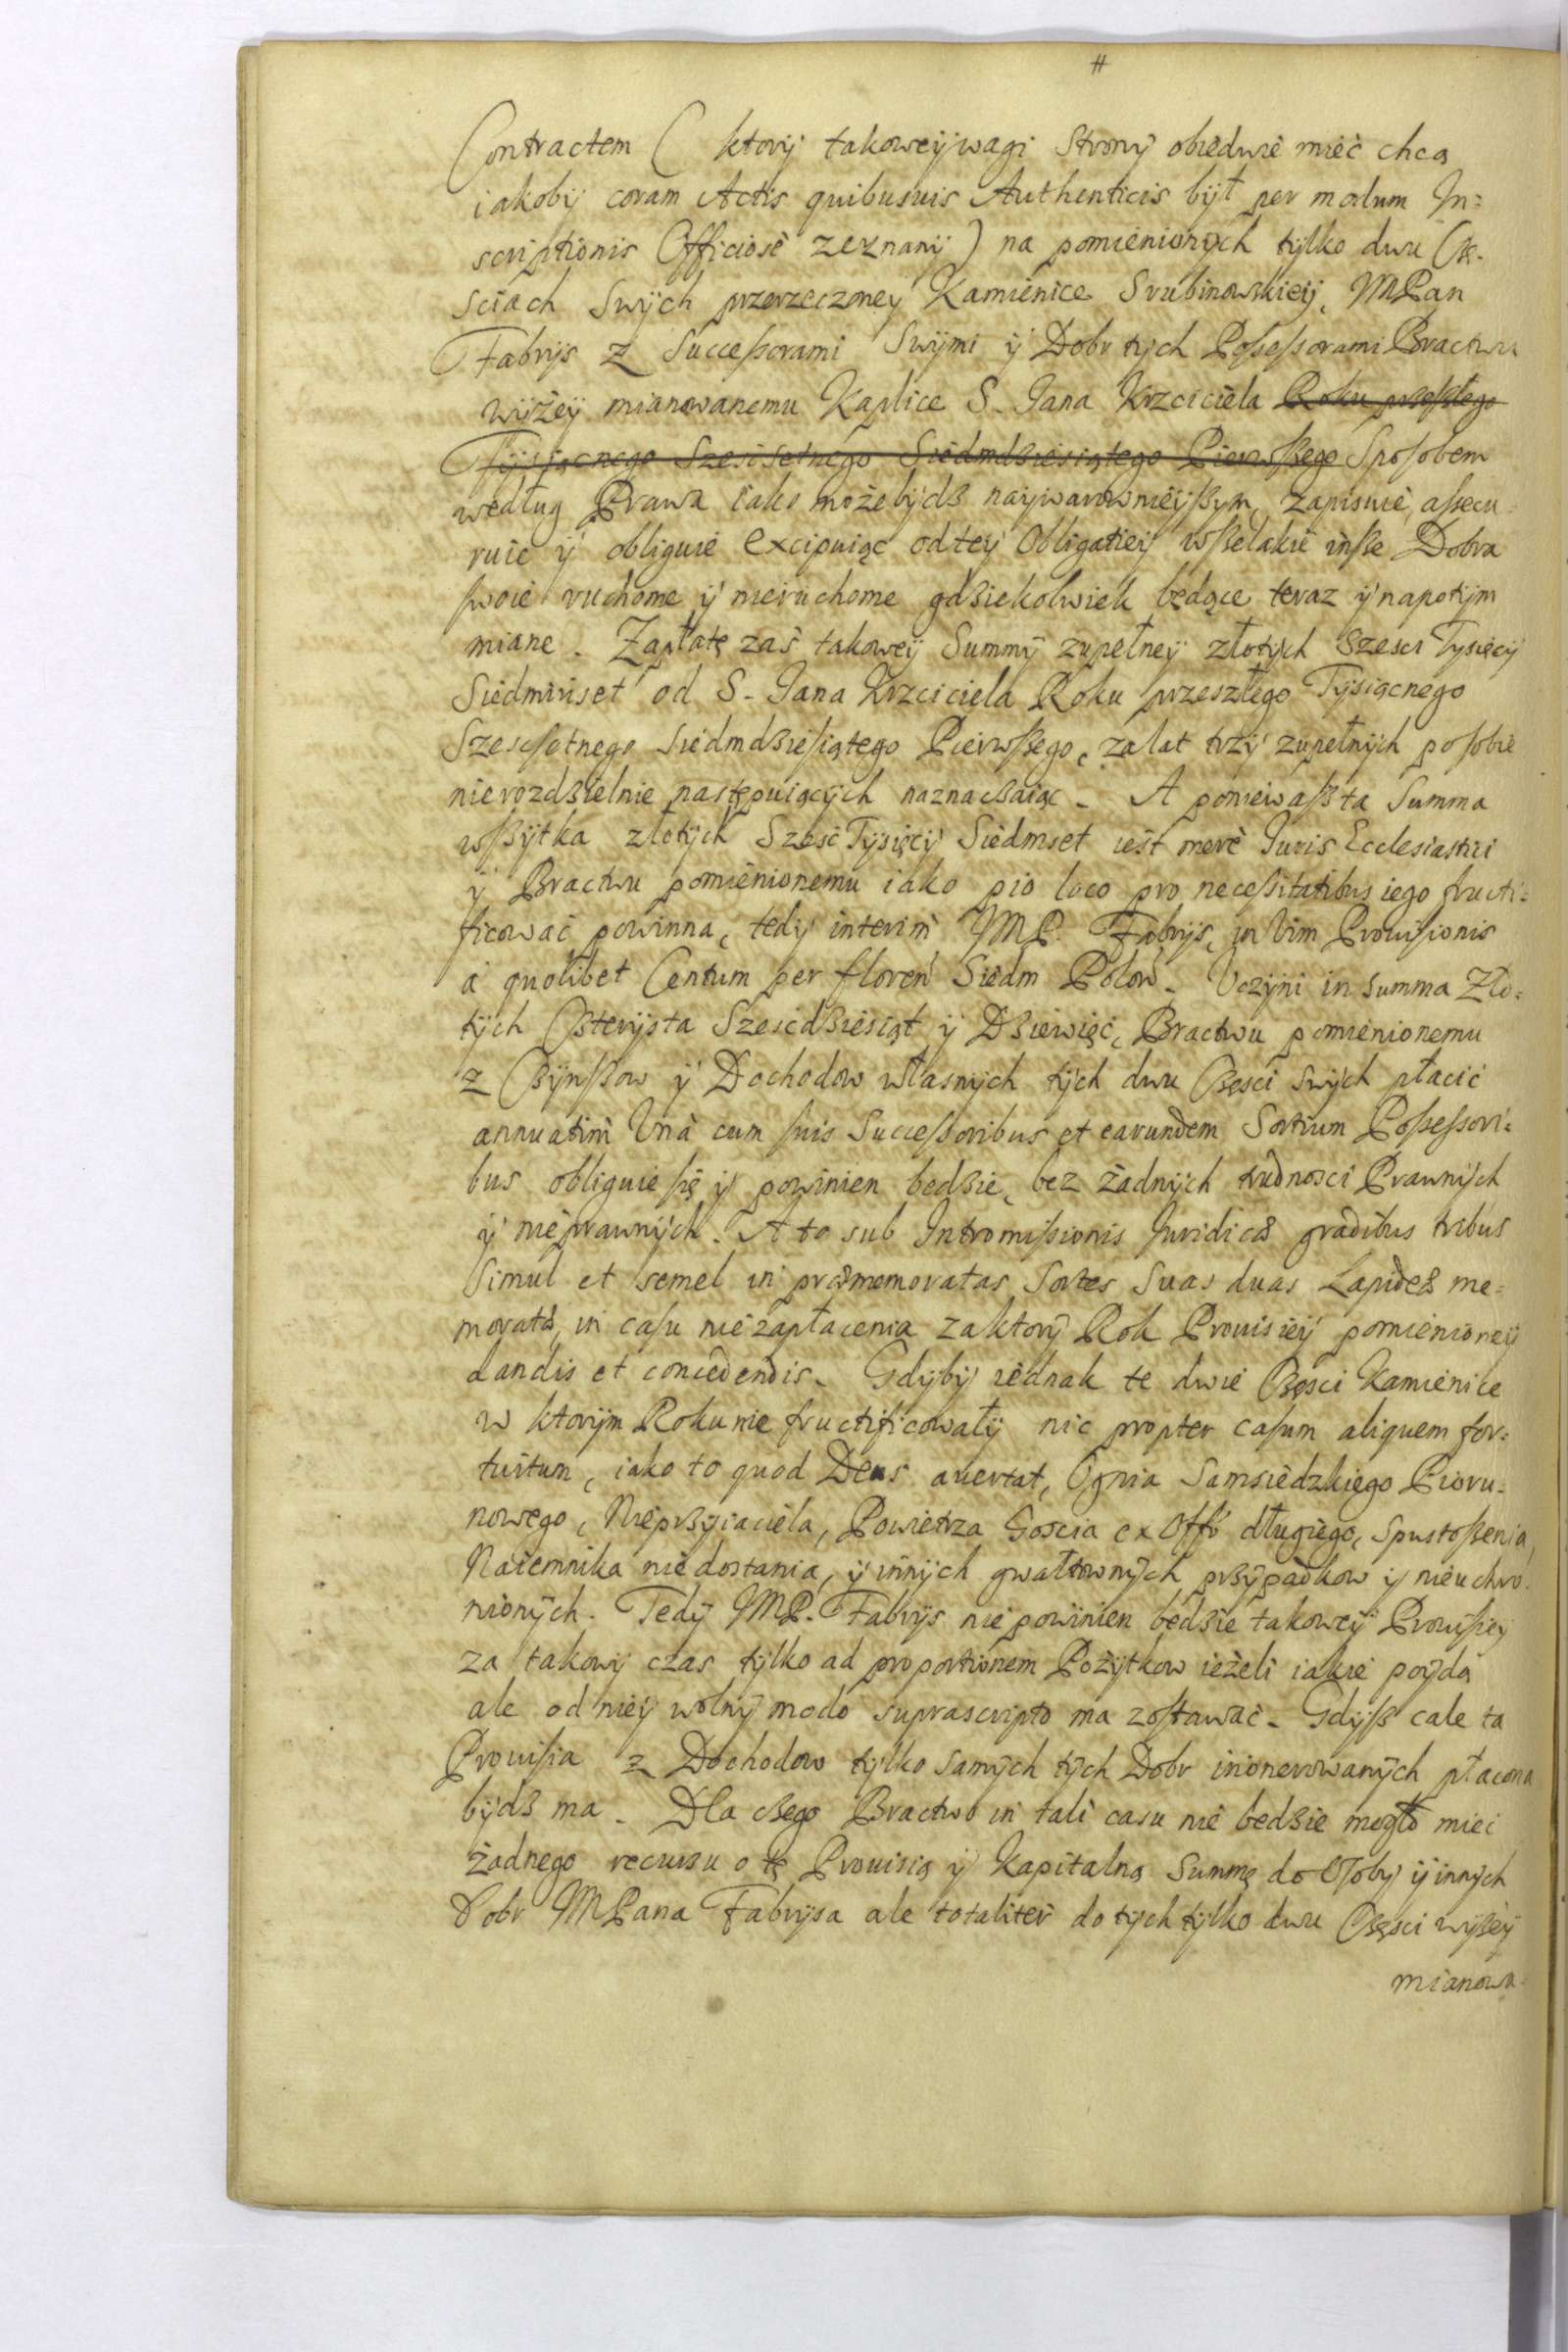 #
Contractem ( ktory takoweÿ wagi Strony obiedwie mieć chcą
iakoby coram Actis quibusuis Authenticis był per modum In=
scriptionis Officiosè zeznany ) na pomienionych tylko dwu Czę-
sciach Swych przerzeczoney Kamienice Srubinowskiey, MPan
Fabrys z Succeßorami Swymi y Dobr tych Poßeßorami Bractwu
wyżey mianowanemu Kaplice S. Jana Krzciciela Roku przeszłego
Tysiącnego Szescsetnego Siedmdziesiątego Pierwszego Sposobem
według Prawa iako może bydź naywarownieyßym, zapisuie, aßecu=
ruie y obliguie excipuiąc od tey Obligatiey wßelakie inße Dobra
swoie ruchome y nieruchome gdziekolwiek będące teraz y napotym
miane. Zapłatę zaś takowey Summy zupełney złotych Szesci Tysięcy
Siedmiuset od S. Jana Krzciciela Roku przeszłego Tysiącnego
Szescsetnego Siedmdziesiątego Pierwßego, za lat trzy zupełnych po sobie
nierozdzielnie następuiących naznaczaiąc. A ponieważ ta Summa
wßytka złotych Sześć Tysięcy Siedmset iest merè Juris Ecclesiastici
y Bractwu pomienionemu iako pio loco pro neceßitatibus iego fructi=
ficować powinna, tedy interim MP. Fabrys, in Vim Prouisionis
à quolibet Centum per floren Siedm Polon. Uczyni in summa Zło=
tych Czterysta Szescdziesiąt y Dziewięć, Bractwu pomienionemu
z Czynßow y Dochodow własnych tych dwu Częsci swych płacić
annuatim Unà cum suis Succeßoribus et earundem Sortium Poßeßori=
bus obliguie się y powinien bedzie, bez żadnych trudnosci Prawnych
y nieprawnych. A to sub Intromißionis Juridicæ gradibus tribus
Simul et semel in præmemoratas Sortes Suas duas Lapideæ me=
moratæ, in casu niezapłacenia za ktory Rok Prouisiey pomienioney
dandis et concedendis. Gdyby iednak te dwie Częsci Kamienice
w ktorym Roku nie fructificowały nic propter casum aliquem for=
tuitum, iako to quod Deus auertat, Ognia Samsiedzkiego Pioru=
nowego, Nieprzyiaciela, Powietrza Goscia ex Offo długiego, Spustoßenia,
Naiemnika niedostania, y innych gwałtownych przypadkow y nieuchro=
nionych. Tedy MP. Fabrys nie powinien będzie takowey Prouisiey
za takowy czas tylko ad proportionem Pożytkow ieżeli iakie poydą
ale od niey wolny modo suprascripto ma zostawać. Gdyß cale ta
Prouisia z Dochodow tylko samych tych Dobr inonerowanych płacona
bydź ma. Dla czego Bractwo in tali casu nie bedzie mogło mieć
żadnego recursu o tę Prouisią y Kapitalną Summę do Osoby y innych
Dobr MPana Fabrysa ale totaliter do tych tylko dwu Częsci wyżey
mianowa=